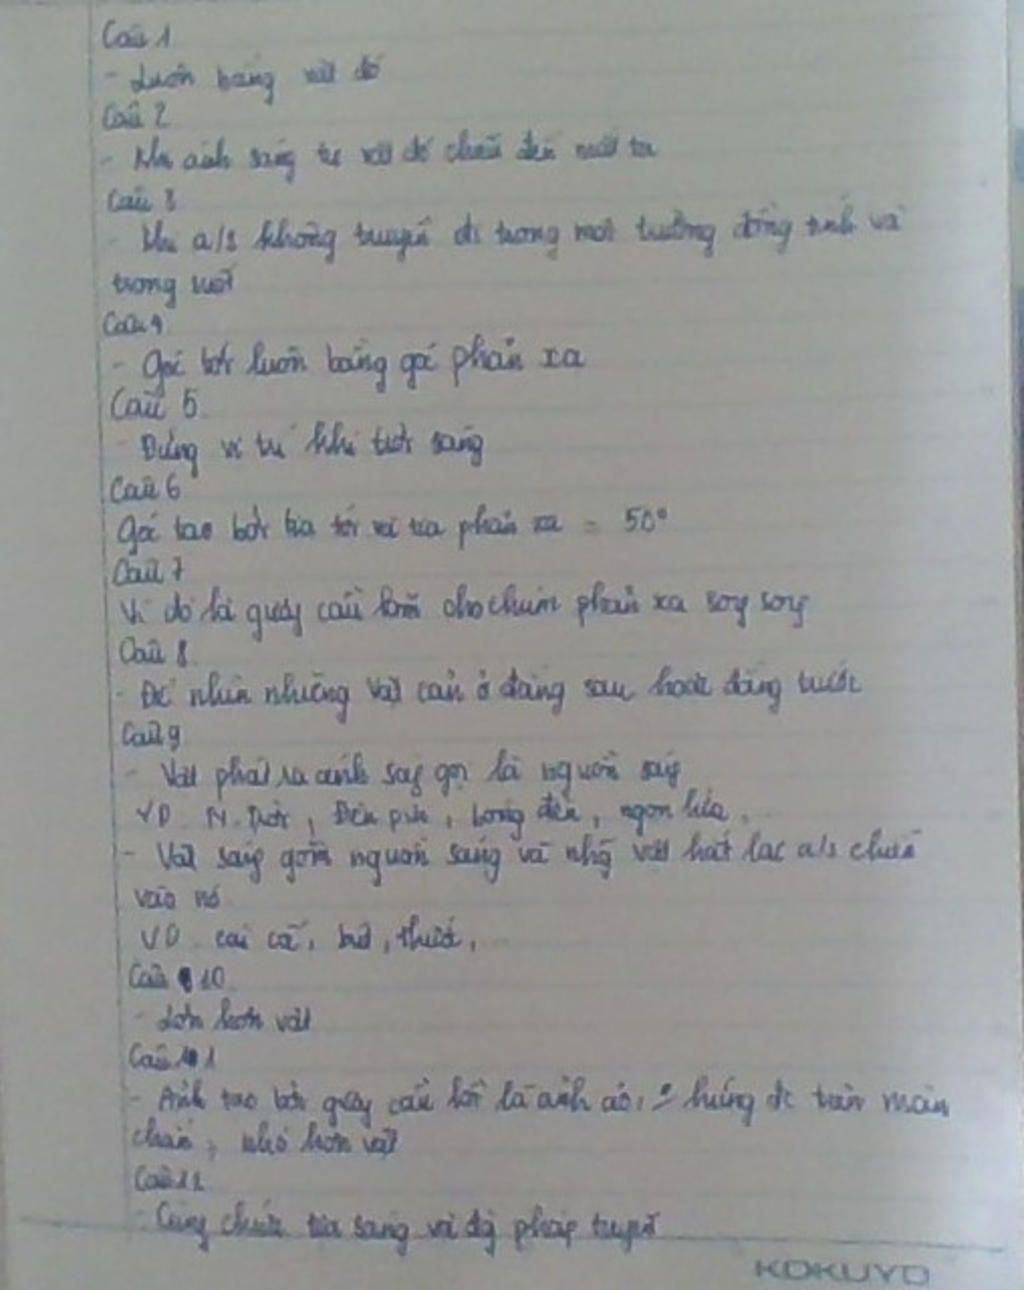 Câu 1
- Luôn bằng vật đó
Câu 2
- Khi ánh sáng từ vật đó chiếu đến mắt ta
Câu 3
- Khi a/s không truyền đi trong môi trường đồng tính và
trong suốt
Câu 4
- Góc tới luôn bằng góc phản xạ
Câu 5
- Đứng vị trí khi trời sáng
Câu 6
Góc tạo bởi tia tới và tia phản xạ = 50°
Câu 7
Vì đó là gương cầu lõm cho chùm phản xạ song song
Câu 8
- Để nhìn những vật cản ở đằng sau hoặc đằng trước
Câu 9
- Vật phát ra ánh sáng gọi là nguồn sáng
VD Đèn pin, bóng đèn, ngọn lửa,
- Vật sáng gồm nguồn sáng và nhg vật hắt lại a/s chiếu
vào nó
VD cái bút, thước, ...
Câu 10
- Lớn hơn vật
Câu 11
- Ảnh tạo bởi gương cầu lồi là ảnh ảo, hứng đc trên màn
chắn, nhỏ hơn vật
Câu 12
- Cùng chứa tia sáng và đg pháp tuyến
KOKUYO